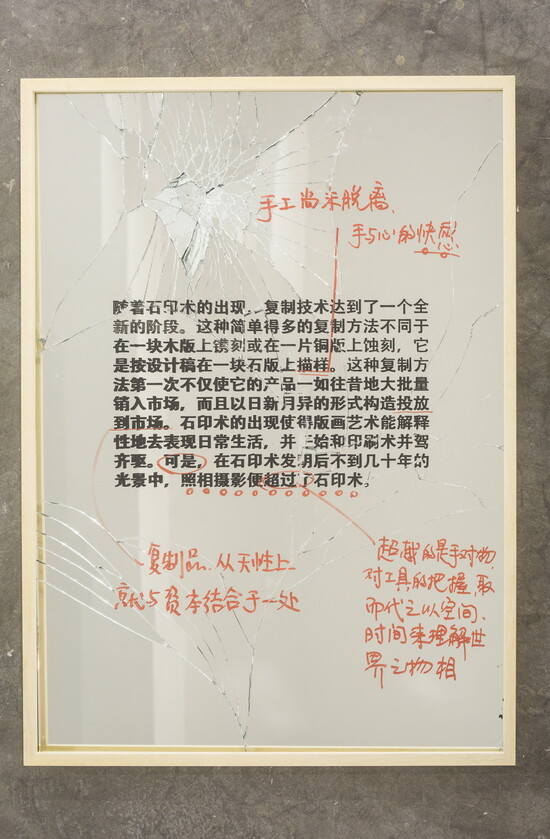 手工尚未脱离、
手与心的快感
随着石印术的出现，复制技术达到了一个全
新的阶段。这种简单得多的复制方法不同于
在一块木版上镌刻或在一片铜版上蚀刻，它
是按设计稿在一块石版上描样。这种复制方
法第一次不仅使它的产品一如往昔地大批量
销入市场，而且以日新月异的形式构造投放
到市场。石印术的出现使得版画艺术能解释
性地去表现日常生活，并 始和印刷术并驾
齐驱。可是，在石印术发明后不到几十年的
光景中，照相摄影便超过了石印术。
复制品、从天性上
就与资本结合于一处
超越的是手对物、
对工具的把握，取
而代之以空间、
时间来理解世
界之物相